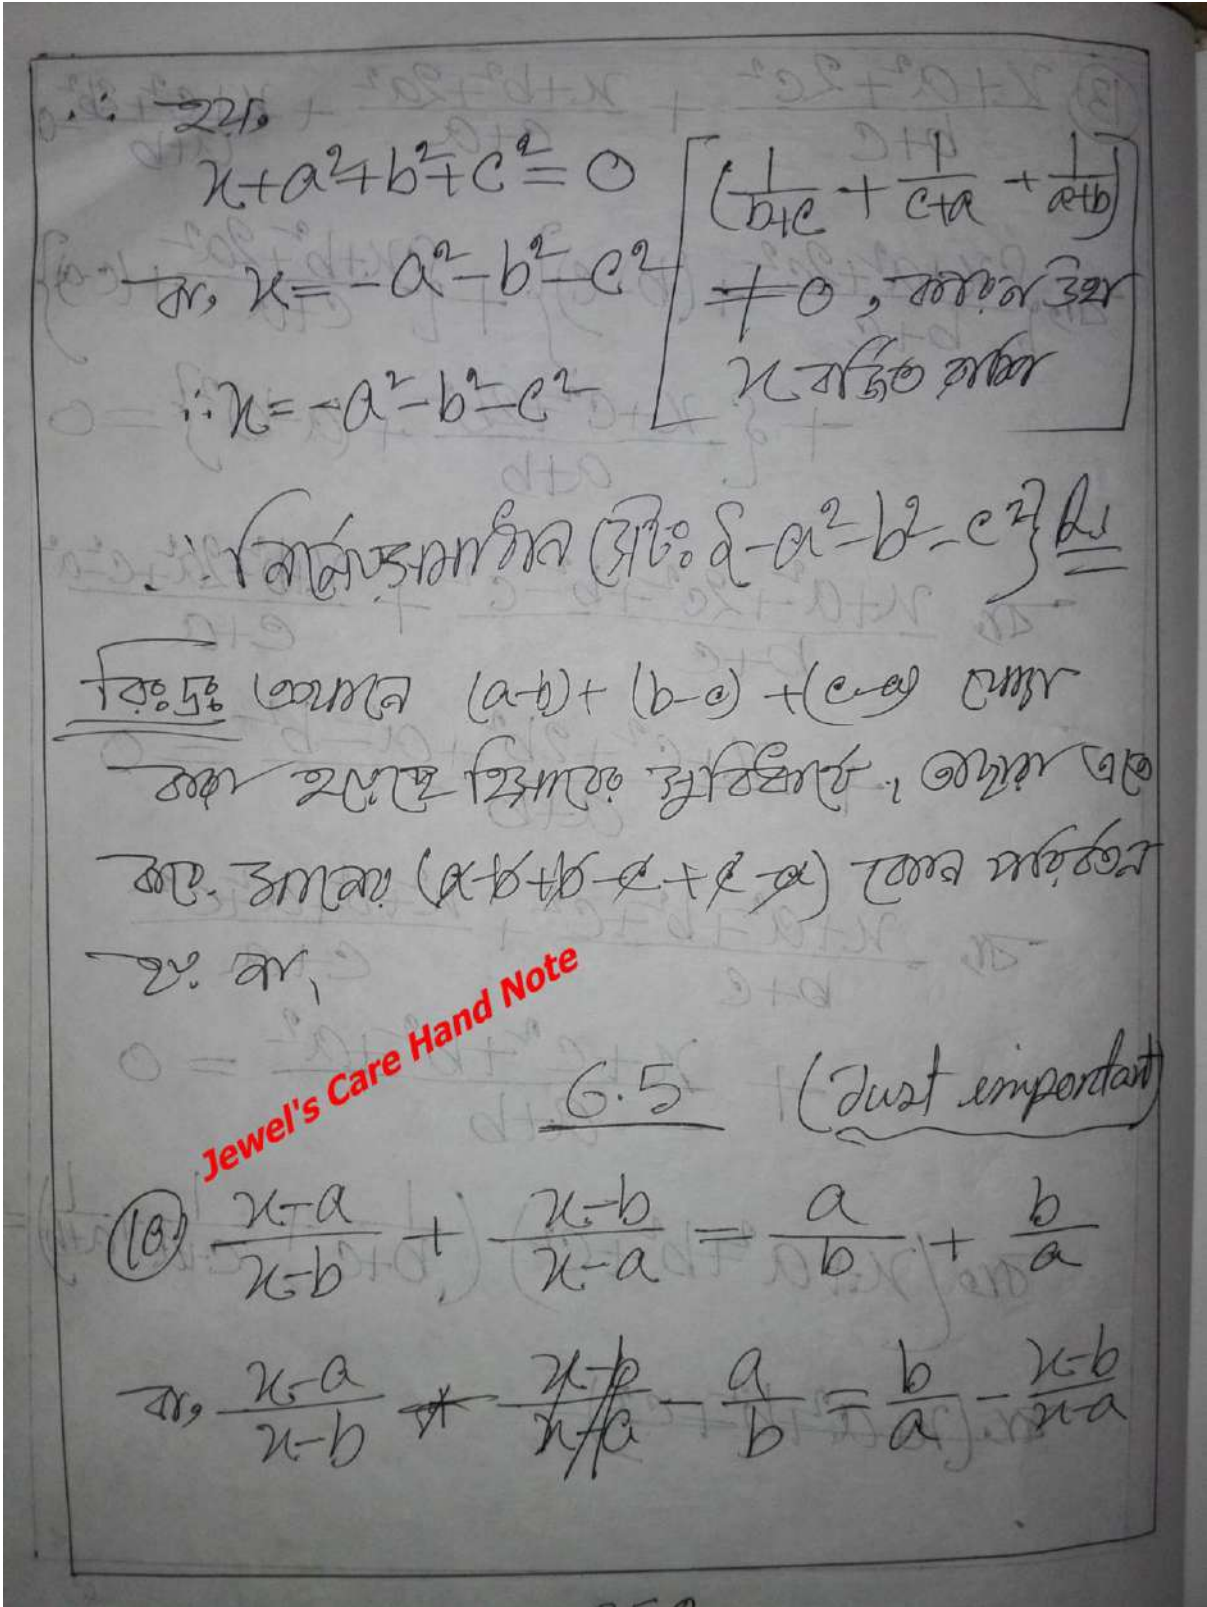 ∴ হয়,
x+a²+b²+c²=0 [(1/(b+c) + 1/(c+a) + 1/(a+b))
বা, x=-a²-b²-c² ≠0, কারন উহা
∴x=-a²-b²-c² x বর্জিত রাশি]
∴ নির্নেয় সমাধান সেটঃ {-a²-b²-c²}
বিঃদ্রঃ এখানে (a-b)+(b-c)+(c-a) যোগ
করা হয়েছে হিসাবের সুবিধার্থে, তাছাড়া এতে
করে মানের (a-b+b-c+c-a) কোন পরিবর্তন
হয় না।
Jewel's Care Hand Note
6.5 (Just important)
(x-a)/(x-b) + (x-b)/(x-a) = a/b + b/a
বা, (x-a)/(x-b) - a/b = b/a - (x-b)/(x-a)